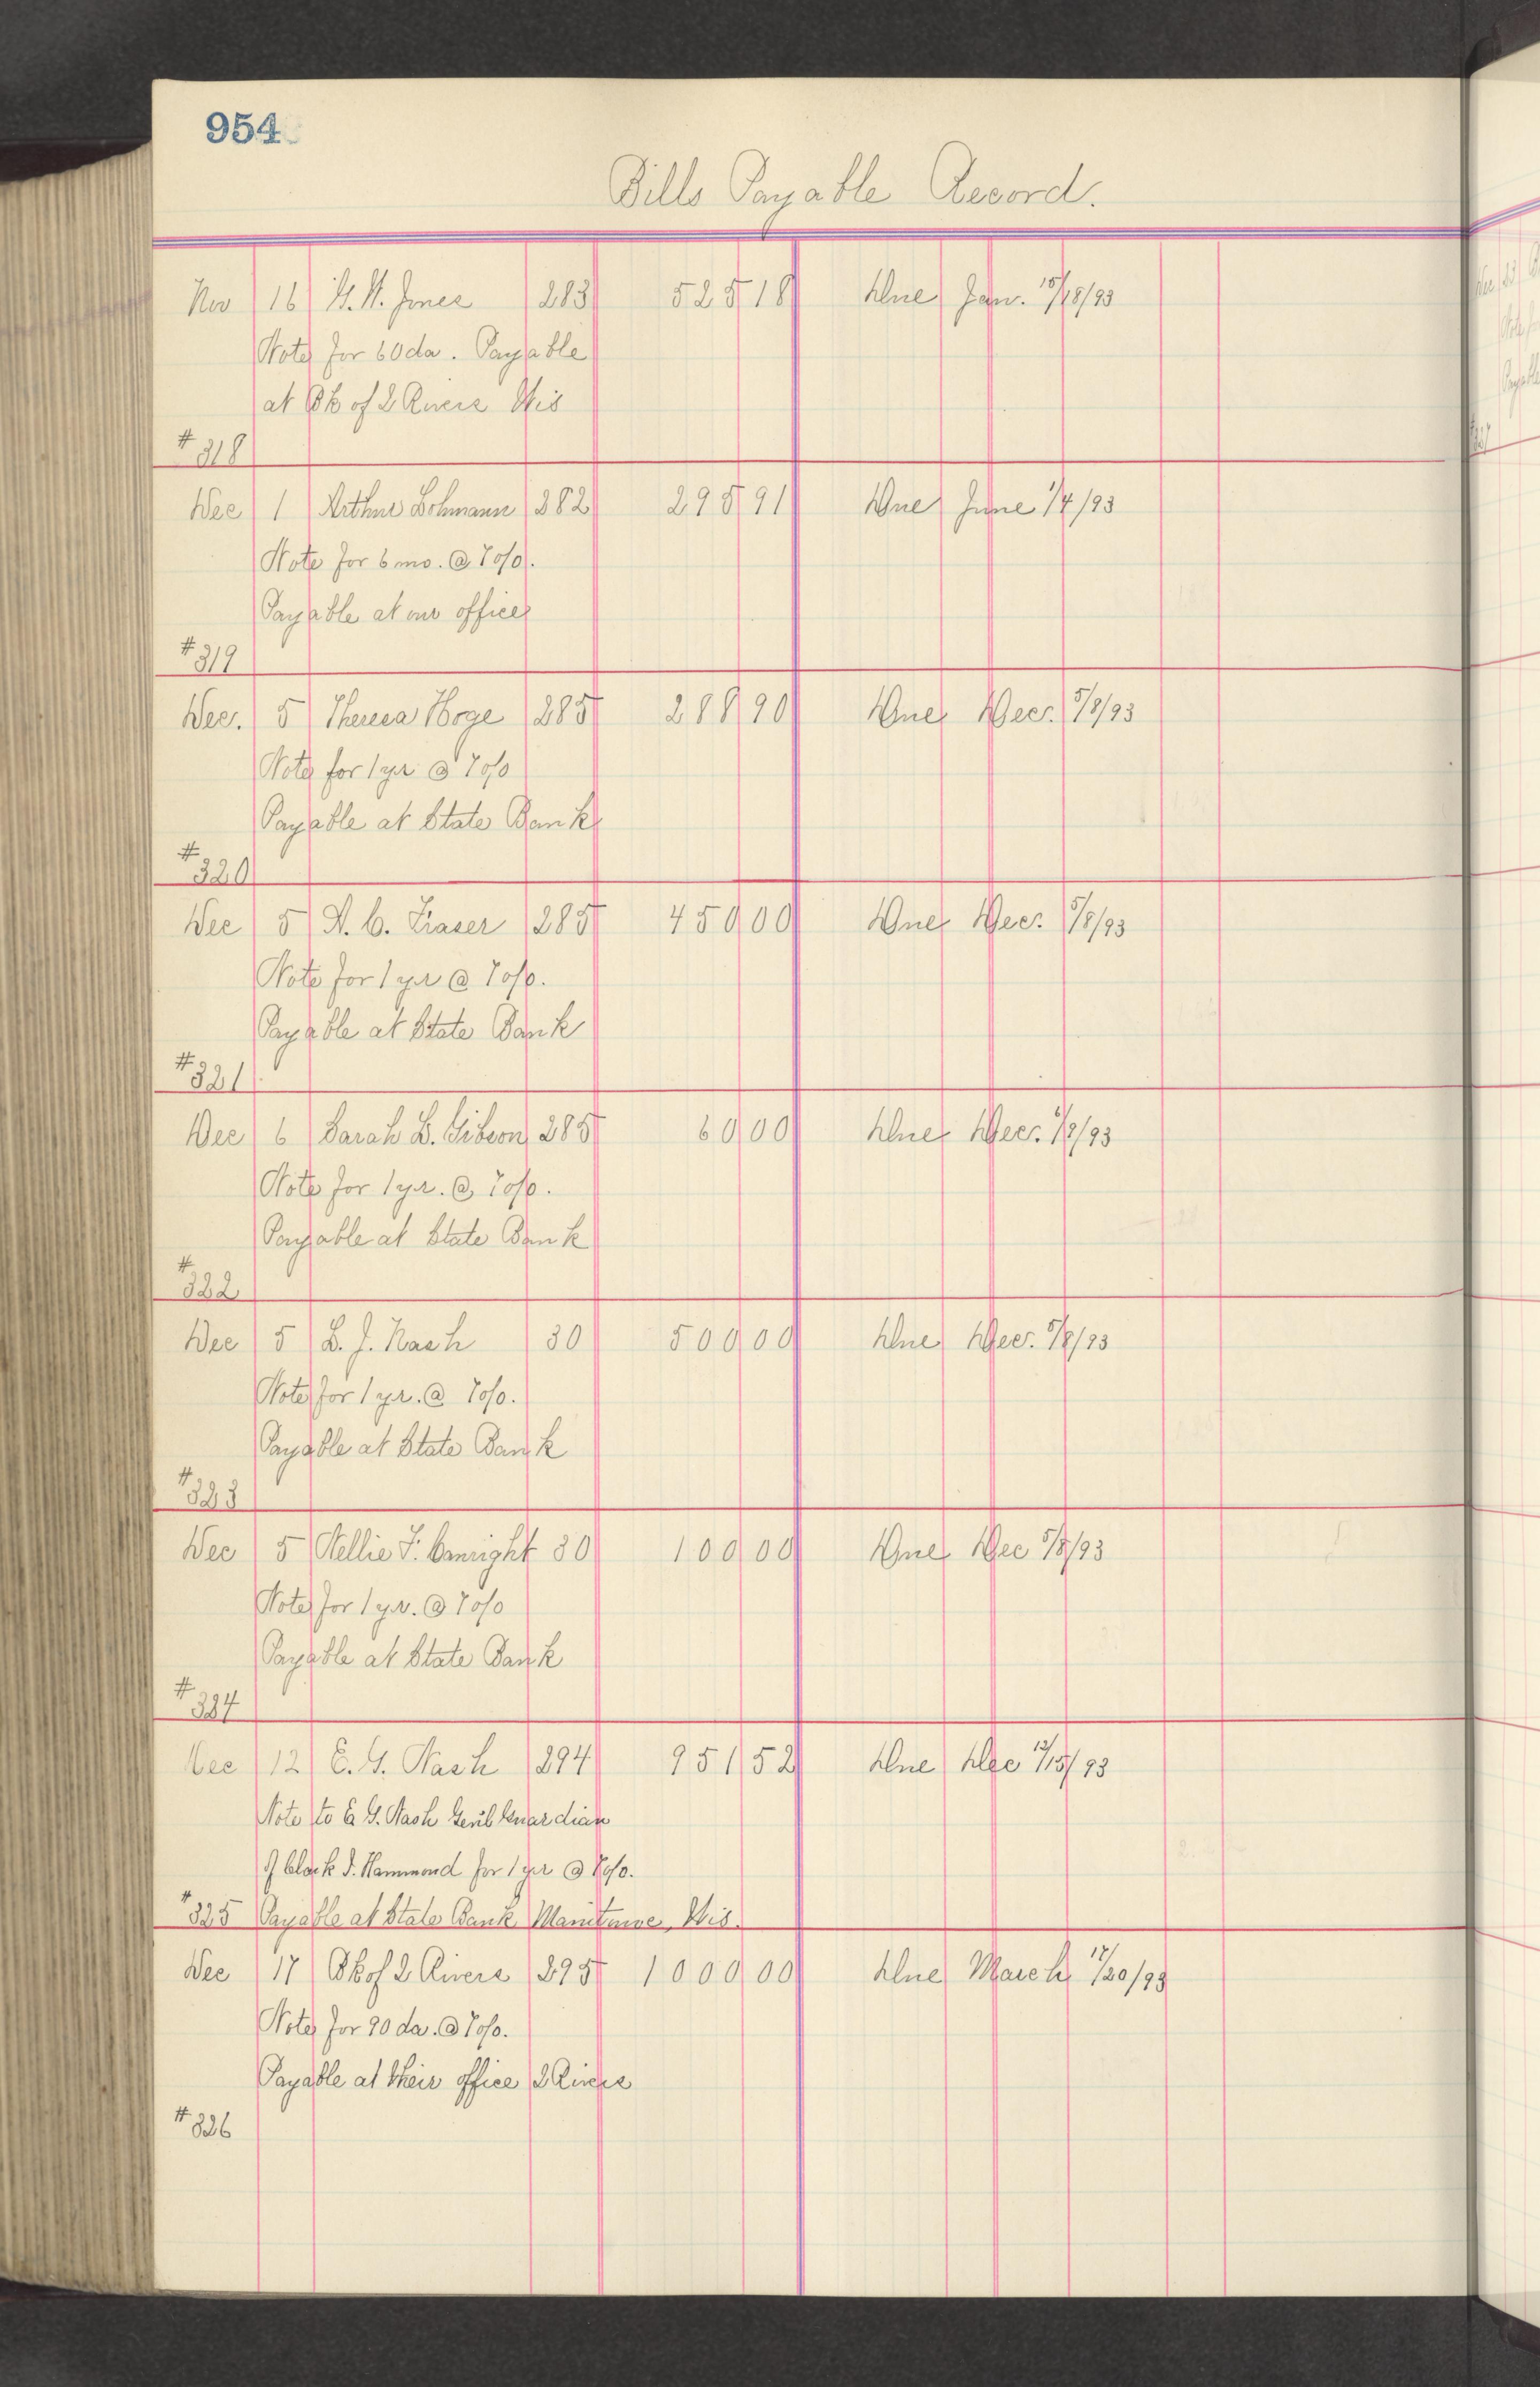 954
Bills Payable Record.
Nov 16 H. H. Jones 283 525 18 Due Jan. 15/18/93
Note for 60 da. Payable
at Bk of 2 Rivers Wis
#318
Dec 1 Arthur Lohmann 282 295 91 Due June 1/4/93
Note for 6 mo. @ 7o/o.
Payable at our office
#319
Dec. 5 Theresa Hoge 285 288 90 Due Dec. 5/8/93
Note for 1 yr @ 7o/o
Payable at State Bank
#320
Dec 5 285 450 00 Due Dec. 5/8/93
Note for 1 yr @ 7o/o.
Payable at State Bank
#321
Dec 6 Sarah L. Gibson 285 60 00 Due Dec. /93
Note for 1 yr. @ 7o/o.
Payable at State Bank
#322
Dec 5 L. J. Nash 30 500 00 Due Dec. 5/8/93
Note for 1 yr. @ 7o/o.
Payable at State Bank
#323
Dec 5 Nellie F. Canright 30 100 00 Due Dec 5/8/93
Note for 1 yr. @ 7o/o
Payable at State Bank
#324
Dec 12 E. G. Nash 294 951 52 Due Dec 12/15/93
Note to E. G. Nash Guardian
of F. Hammond for 1 yr @ 7o/o.
#325 Payable at State Bank Manitowoc, Wis.
Dec 17 Bk of 2 Rivers 295 1000 00 Due March 17/20/93
Note for 90 da. @ 7o/o.
Payable at their office 2 Rivers
#326